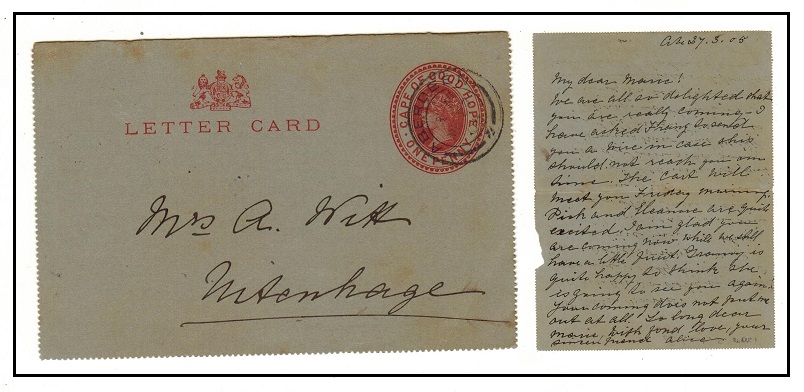 LETTER CARD
CAPE OF GOOD HOPE
ONE PENNY
Mrs A. Witt
Uitenhage
27.3.05
My dear Marie!
We are all so delighted that
you are really coming – I
have asked to send
you a wire in case this
should not reach you in
time. The Cart will
meet you Friday morning.
and Eleanor are quite
excited. I am glad you
are coming now while we still
have a little fruit. Granny is
quite happy to think she
is going to see you again.
Your coming does not put me
out at all. So long dear
Marie, with fond love, your
sincere friend Alice